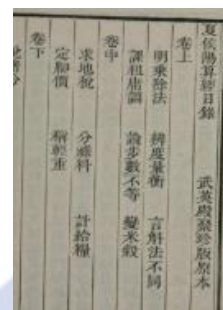 夏侯陽算經目錄　武英殿聚珍版原本
卷上
明乘除法　辨度量衡　言斛法不同
課租庸調　論步數不等　變米穀
卷中
求地稅　分祿料　計給糧
定腳價　稱輕重
卷下
說諸分